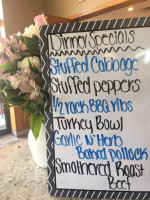 Dinner Specials
Stuffed Cabbage
Stuffed peppers
1/2 rack BBQ ribs
Turkey Bowl
Garlic N' Herb
Baked pollock
Smothered Roast
Beef